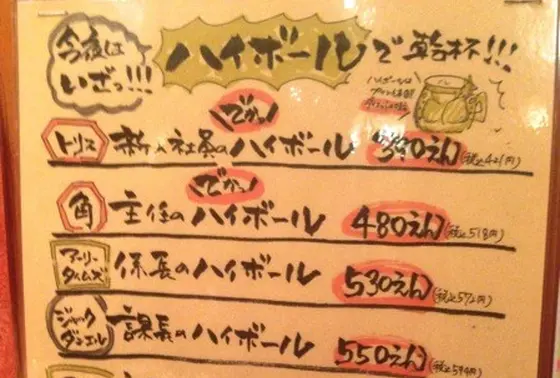 今夜は
いざっ!!!
ハイボールで乾杯!!!
でかっ
トリス 新入社員のハイボール 390えん(税込421円)
でかっ
角 主任のハイボール 480えん(税込518円)
アーリータイムズ 係長のハイボール 530えん(税込572円)
ジャックダニエル 課長のハイボール 550えん(税込594円)